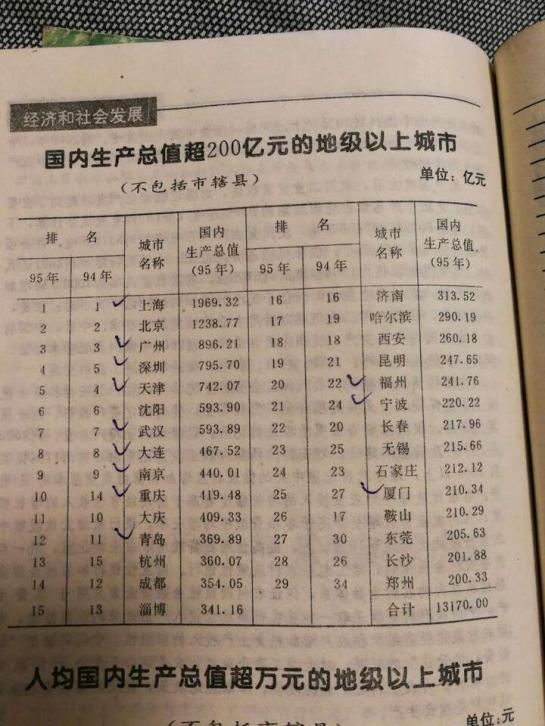 经济和社会发展
国内生产总值超200亿元的地级以上城市
(不包括市辖县) 单位：亿元
排 名 城市名称 国内生产总值(95年) 排 名 城市名称 国内生产总值(95年)
95年 94年 95年 94年
1 1 上海 1969.32 16 16 济南 313.52
2 2 北京 1238.77 17 19 哈尔滨 290.19
3 3 广州 896.21 18 18 西安 260.18
4 5 深圳 795.70 19 21 昆明 247.65
5 4 天津 742.07 20 22 福州 241.76
6 6 沈阳 593.90 21 24 宁波 220.22
7 7 武汉 593.89 22 20 长春 217.96
8 8 大连 467.52 23 25 无锡 215.66
9 9 南京 440.01 24 23 石家庄 212.12
10 14 重庆 419.48 25 27 厦门 210.34
11 10 大庆 409.33 26 17 鞍山 210.29
12 11 青岛 369.89 27 30 东莞 205.63
13 15 杭州 360.07 28 26 长沙 201.88
14 12 成都 354.05 29 34 郑州 200.33
15 13 淄博 341.16 合计 13170.00
人均国内生产总值超万元的地级以上城市
(不包括市辖县) 单位：元